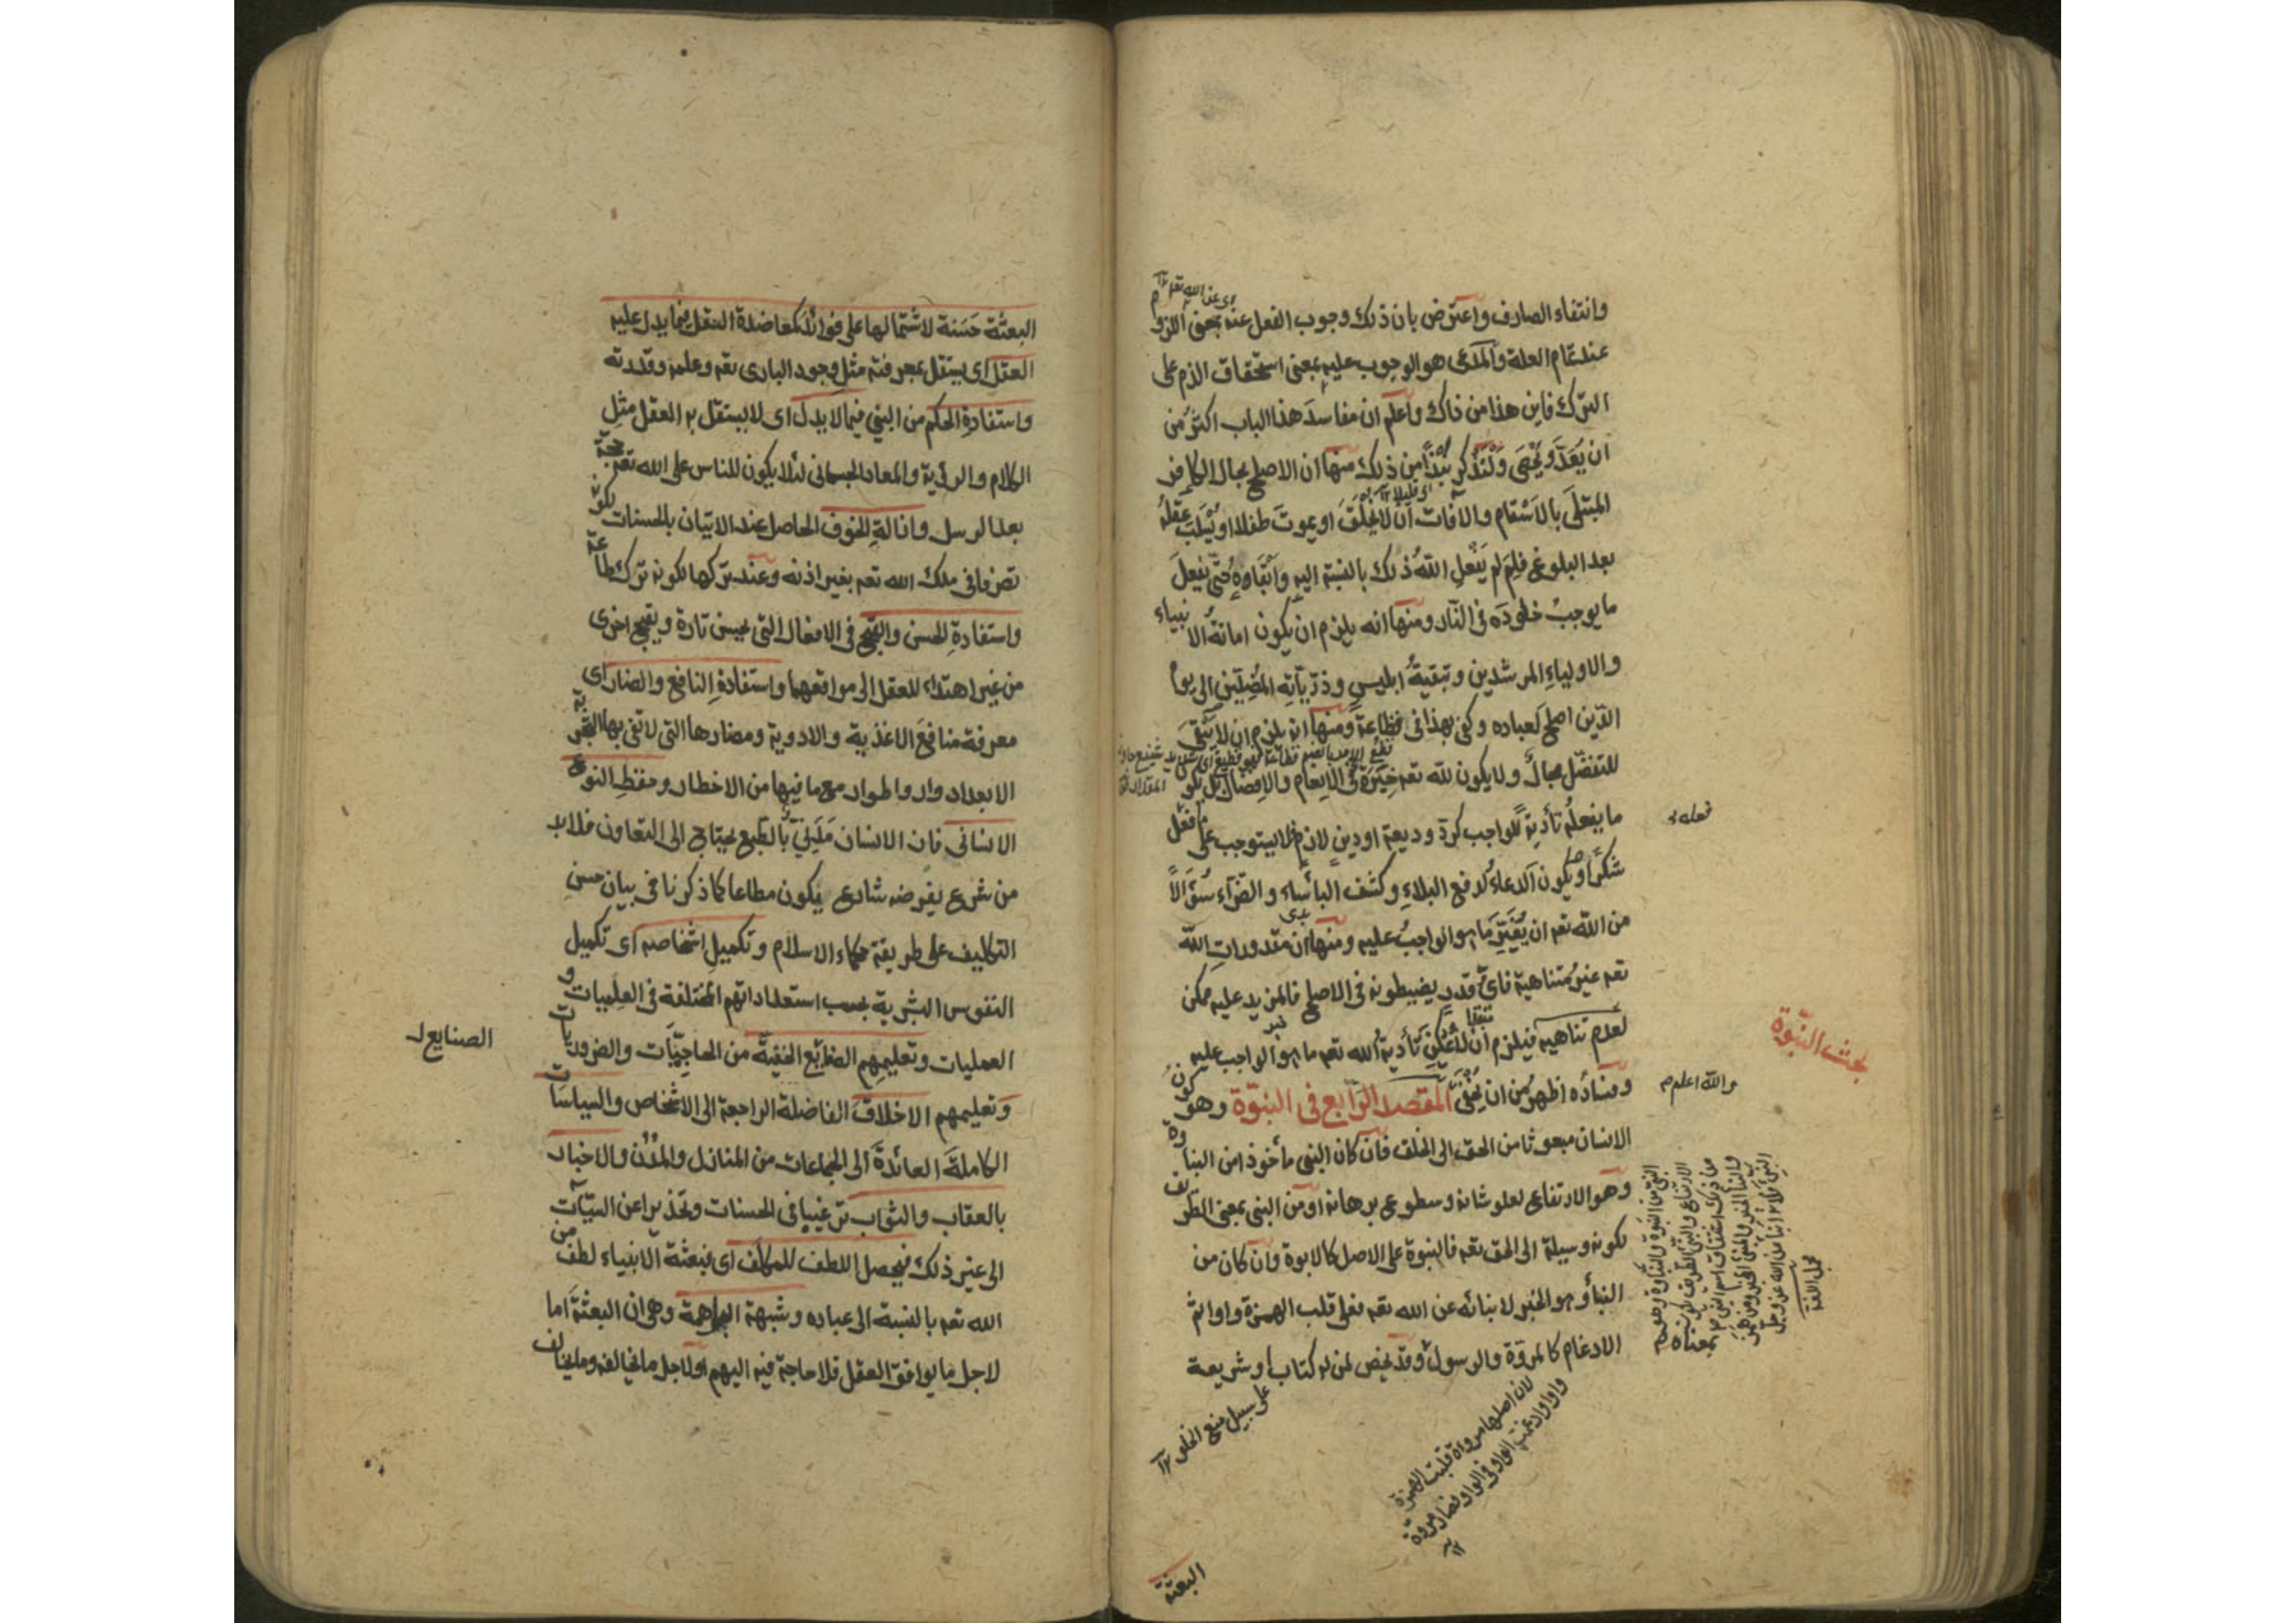 وانتفاء الصارف واعترض بان ذلك وجوب الفعل عنه بمعنى اللزوم
اى عن الله تعه ١٢
عند تمام العلة والمدعى هو الوجوب عليه بمعنى استحقاق الذم على
الترك فاين هذا من ذاك واعلم ان مفاسد هذا الباب اكثر من
ان يُعَدّ ويُحْصَى ولْنذكر نُبَذًا من ذلك منها ان الاصلح بحال الكافر
اى قليلا ١٢
المبتلى بالاسقام والآفات ان لا يُخلَقَ او يموت طفلا او يُسْلَبَ عقلُه
بعد البلوغ فلِمَ لم يَفْعَلِ اللهُ ذلك بالنسبة اليه وابقاوه حتى يفعل
ما يوجب خلودَه فى النار ومنها انه يلزم ان يكون اماتةُ الانبياء
والاولياءِ المرشدين وتبقيةُ ابليسٍ وذرّيّاتِه المُضِلّين الى يوم
الدّين اصلح لعباده وكفى بهذا فى فظاعة ومنها انه يلزم ان لا يبقى
للتفضّل مجالٌ ولا يكون لله تعه خِيَرَةٌ فى الانعام والافضال بل يكون
ما يفعلُه تأديةً للواجب كردّ وديعة او دينٍ لازم فلا يستوجب على فعله
فعله
شكرًا ويكون الدعاءُ لدفع البلاءِ وكشف البأساء والضّرّاء سُؤَالًا
من الله تعه ان يُغَيِّرَ ما هو الواجبُ عليه ومنها ان مقدورات الله
تعه غيرُ متناهية فاىّ قدرٍ يضبطونه فى الاصلح فالمزيد عليه ممكن
لعدم تناهيه فيلزم ان لا يُمْكِنَ تأديةُ الله تعه ما هو الواجب عليه
بحث النبّوة
وفسادُه اظهرُ من ان يُخْفَى المقصد الرّابع فى النبوّة وهو كونُ
والله اعلم م
الانسان مبعوثا من الحق الى الخلق فان كان النبى مأخوذا من النباوة
وهو الارتفاع لعلو شانه وسطوع برهانه او من النبى بمعنى الطريق
لكونه وسيلة الى الحق تعه فالنبوة على الاصل كالابوة وان كان من
النبأ وهو الخبر لانبائه عن الله تعه فعلى قلب الهمزة واوا ثم
الادغام كالمروّة والرسول وقد يخص لمن له كتاب او شريعة
على سبيل منع الخلو ١٢
لان اصلها مروأة قلبت الهمزة
واوا وادغمت الواو فى الواو فصار مروّة
١٢
مجمل اللغة
البعثة
البعثة حَسَنة لاشتمالها على فوائد كمعاضدة العقل فيما يدل عليه
العقل اى يستقل بمعرفته مثل وجود البارى تعه وعلمه وقدرته
واستفادةِ الحكم من النبى فيما لا يدل اى لا يستقل به العقل مثل
الكلام والرؤية والمعاد الجسمانى لئلا يكون للناس على الله تعه حجّة
بعد الرسل وازالةِ الخوف الحاصل عند الاتيان بالحسنات لكونه
تصرفا فى ملك الله تعه بغير اذنه وعند تركها لكونه ترك طاعة
واستفادةِ الحسن والقبح فى الافعال التى يحسن تارة ويقبح اخرى
من غير اهتداء للعقل الى مواقعهما واستفادةِ النافع والضار اى
معرفة منافع الاغذية والادوية ومضارها التى لا تفى بها التجربة
الا بعد ادوار واطوار مع ما فيها من الاخطار وحفظِ النوع
الانسانى فان الانسان مَدَنِىّ بالطبع يحتاج الى التعاون فلا بد
من شرع يفرضه شارع يكون مطاعا كما ذكرنا فى بيان حسن
التكليف على طريقة حكماء الاسلام وتكميلِ اشخاصه اى تكميل
النفوس البشرية بحسب استعداداتهم المختلفة فى العلميات و
العمليات وتعليمِهم الصنائع الخفيّة من الحاجيّات والضروريات
الصنايع ل
وتعليمهم الاخلاق الفاضلة الراجعة الى الاشخاص والسياسات
الكاملة العائدة الى الجماعات من المنازل والمدن والاخبار
بالعقاب والثواب ترغيبا فى الحسنات وتحذيرا عن السيّآت
الى غير ذلك فيحصل اللطف للمكلّف اى فبعثة الانبياء لطف من
الله تعه بالنسبة الى عباده وشبهة البراهمة وهى ان البعثة اما
لاجل ما يوافق العقل فلا حاجة فيه اليهم او لاجل ما يخالفه وما يخالف